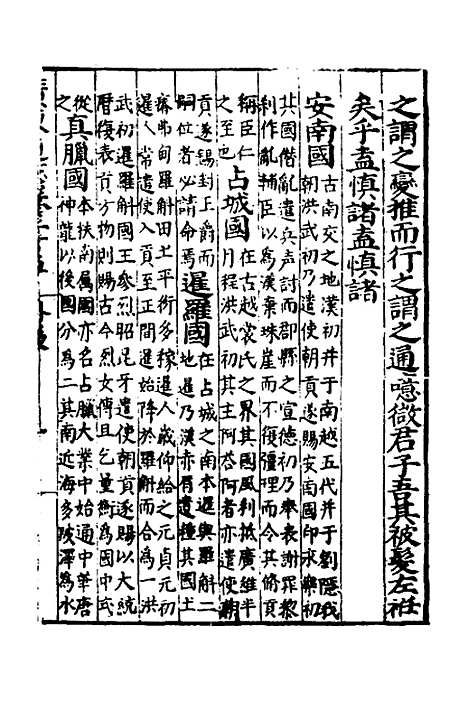 之謂之變推而行之謂之通噫微君子吾其被髮左衽
矣乎盍慎諸盍慎諸
安南國古南交之地漢初并于南越五代并于劉隱我
朝洪武初乃遣使朝貢遂賜安南國印永樂初
其國僭亂遣兵聲討而郡縣之宣德初乃奉表謝罪黎
利作亂輔臣以為漢棄珠崖而不復彊理而今其脩貢
稱臣仁
之至也占城國在古越裳氏之界其國風利抵廣維半
月程洪武初其主阿荅阿者亦遣使朝
貢遂錫封上爵而
嗣位者必請命焉暹羅國在占城之南本暹與羅斛二
地暹乃漢赤眉遺種其國土
瘠弗甸羅斛田土平衍多稼暹人歲仰給之元貞元初
暹人常遣使入貢至正間暹始降於羅斛而合為一洪
武初暹羅斛國王參烈昭毘牙遣使朝貢遂賜以大統
曆復表貢方物則賜古今烈女傳且乞量衡為國中式
從
之真臘國本扶南属國亦名占臘大業中始通中華唐
神龍以後國分為二其南近海多陂澤為水